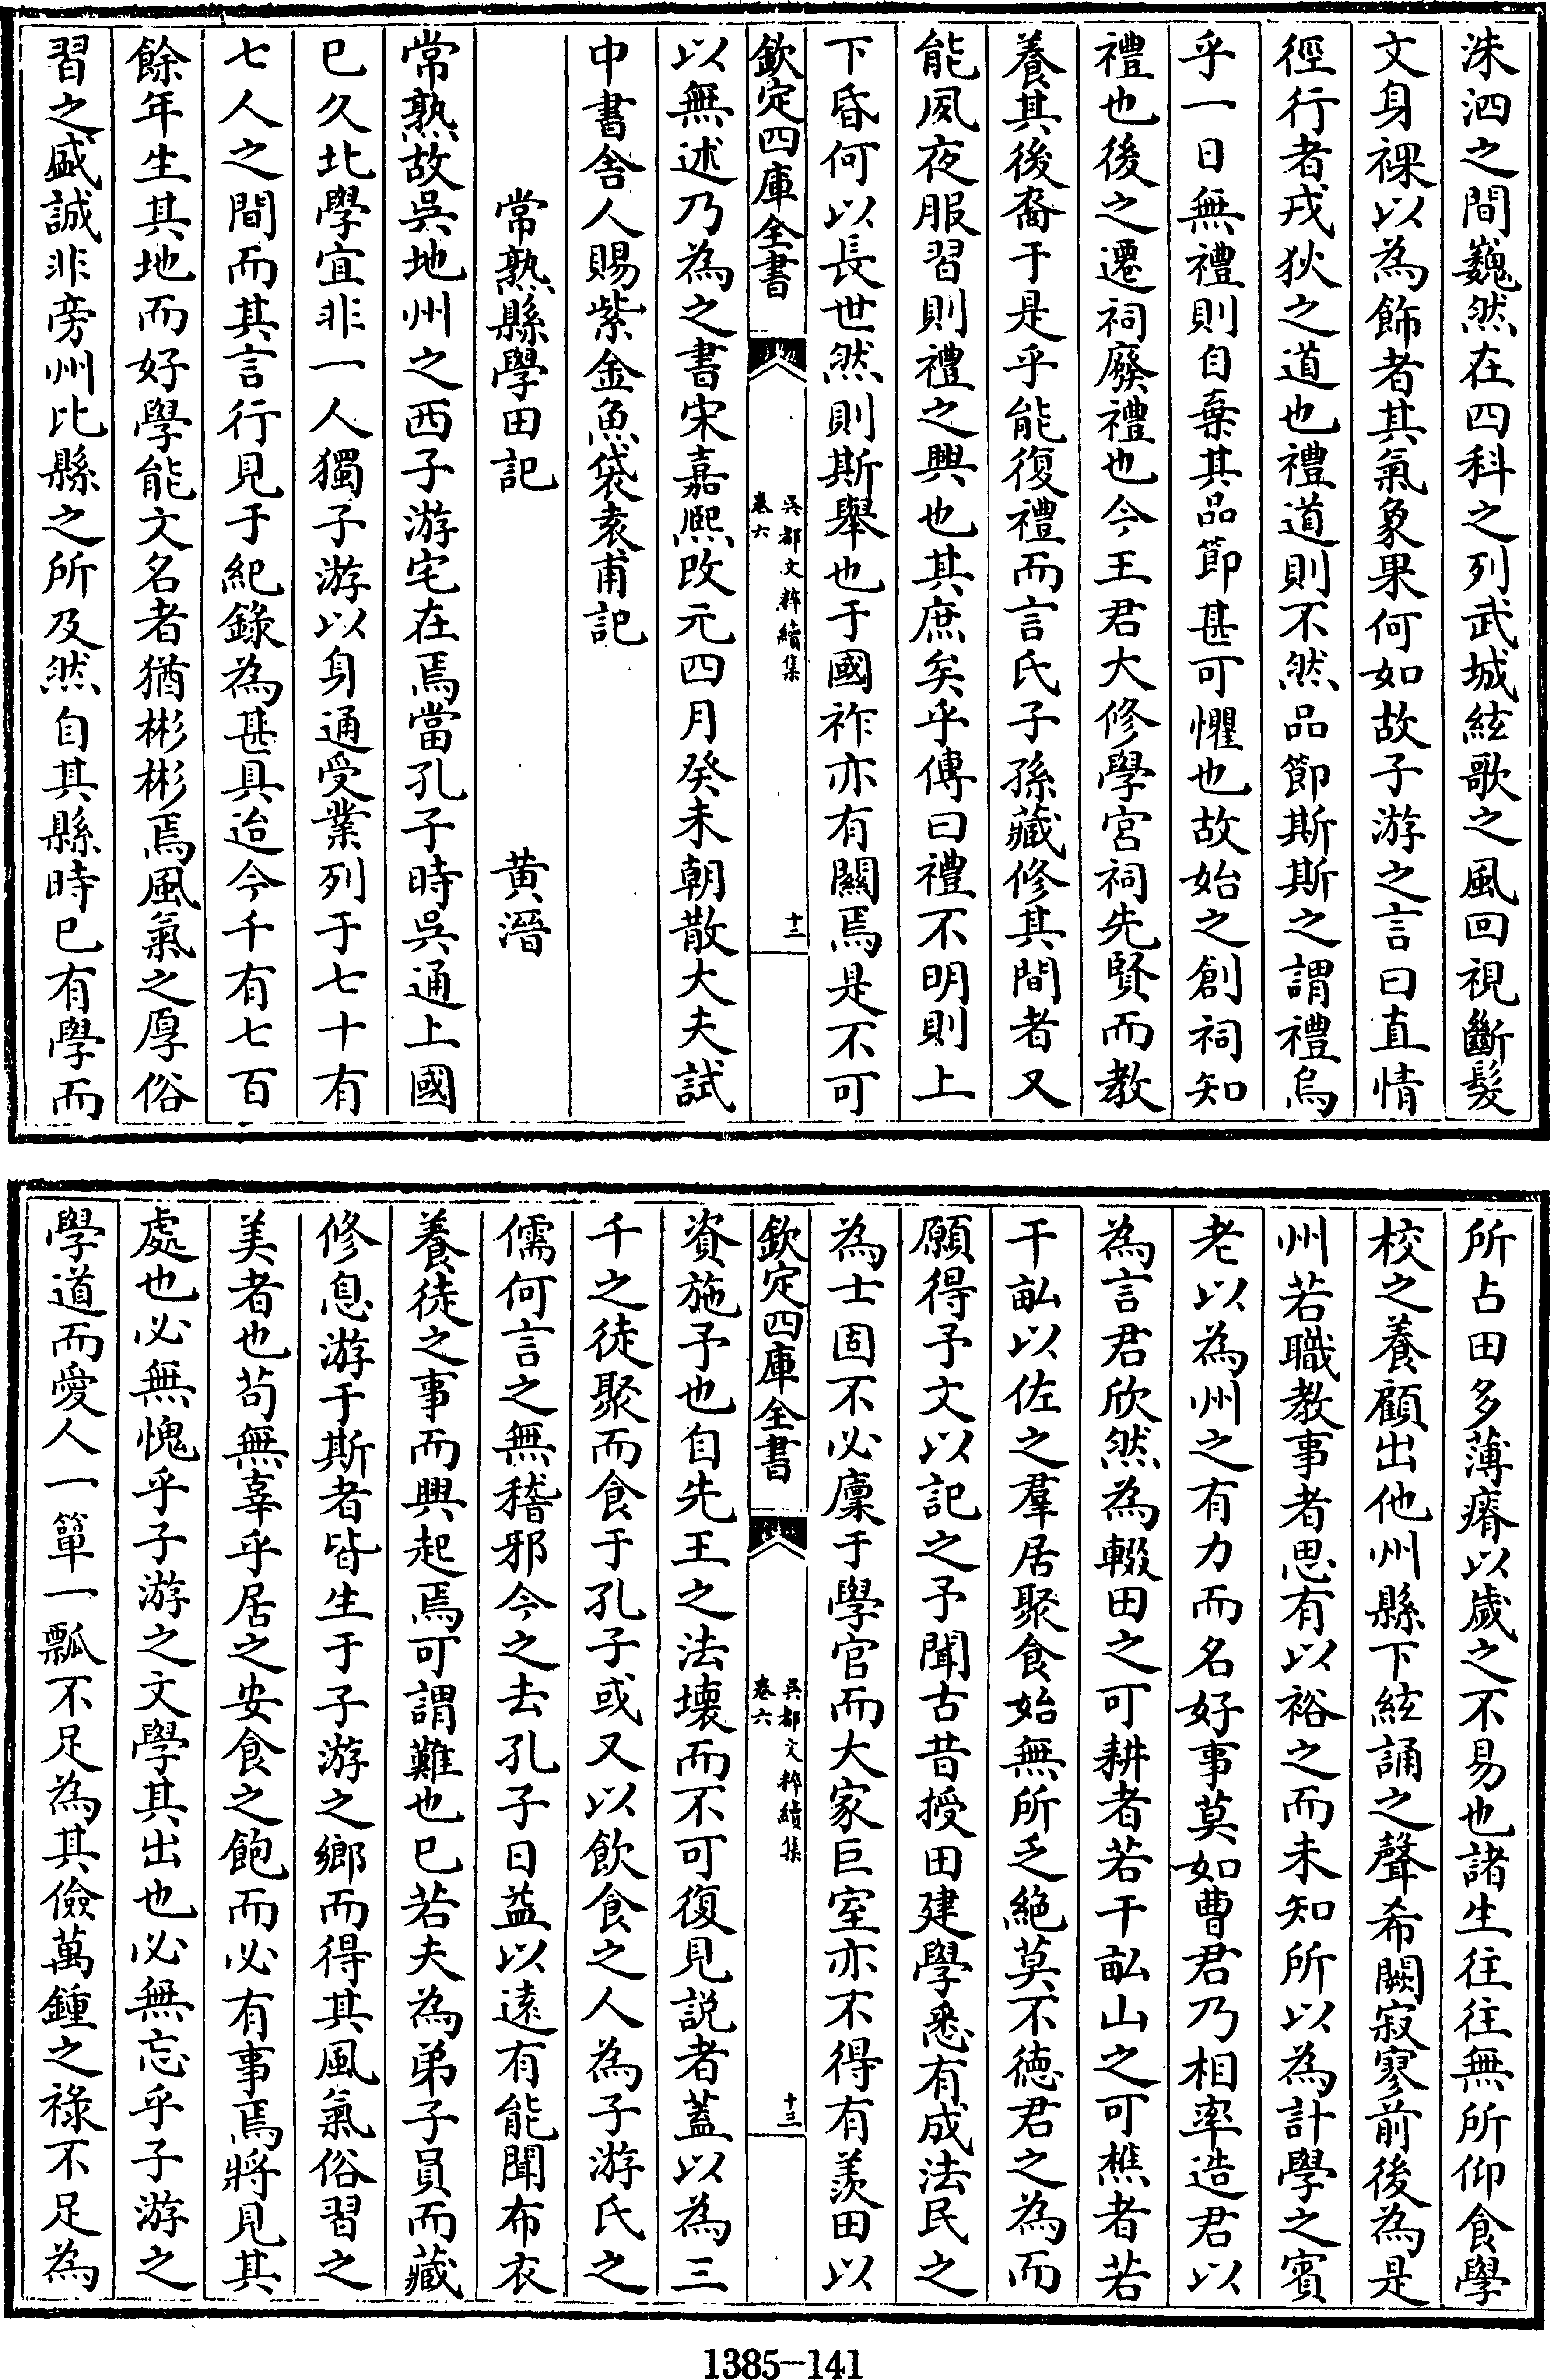 洙泗之間巍然在四科之列武城絃歌之風回視斷髮
文身裸以為飾者其氣象果何如故子游之言曰直情
徑行者戎狄之道也禮道則不然品節斯斯之謂禮烏
乎一日無禮則自棄其品節甚可懼也故始之創祠知
禮也後之遷祠廢禮也今王君大修學宮祠先賢而教
養其後裔于是乎能復禮而言氏子孫藏修其間者又
能夙夜服習則禮之興也其庶矣乎傳曰禮不明則上
下昏何以長世然則斯舉也于國祚亦有關焉是不可
欽定四庫全書
吳都文粹續集
卷六
十二
以無述乃為之書宋嘉熙改元四月癸未朝散大夫試
中書舍人賜紫金魚袋袁甫記
常熟縣學田記
黃溍
常熟故吳地州之西子游宅在焉當孔子時吳通上國
巳久北學宜非一人獨子游以身通受業列于七十有
七人之間而其言行見于紀錄為甚具迨今千有七百
餘年生其地而好學能文名者猶彬彬焉風氣之厚俗
習之盛誠非旁州比縣之所及然自其縣時巳有學而
所占田多薄瘠以歲之不易也諸生往往無所仰食學
校之養顧出他州縣下絃誦之聲希闊寂寥前後為是
州若職教事者思有以裕之而未知所以為計學之賓
老以為州之有力而名好事莫如曹君乃相率造君以
為言君欣然為輟田之可耕者若干畝山之可樵者若
干畝以佐之羣居聚食始無所乏絕莫不德君之為而
願得予文以記之予聞古昔授田建學悉有成法民之
為士固不必廩于學官而大家巨室亦不得有羨田以
欽定四庫全書
吳都文粹續集
卷六
十三
資施予也自先王之法壞而不可復見說者蓋以為三
千之徒聚而食于孔子或又以飲食之人為子游氏之
儒何言之無稽邪今之去孔子日益以遠有能聞布衣
養徒之事而興起焉可謂難也巳若夫為弟子員而藏
修息游于斯者皆生于子游之鄉而得其風氣俗習之
美者也苟無辜乎居之安食之飽而必有事焉將見其
處也必無愧乎子游之文學其出也必無忘乎子游之
學道而愛人一簞一瓢不足為其儉萬鍾之祿不足為
1385-141